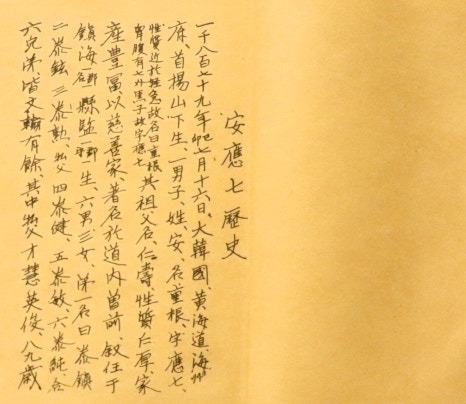 安應七歷史
一千八百七十九年己卯七月十六日、大韓國、黃海道、海州
府、首楊山下生、一男子、姓、安、名重根、字應七、
性質近於輕急故名曰重根
胸腹有七介黑子故字應七
其祖父名、仁壽、性質仁厚、家
産豊富、以慈善家、著名於道內曾前、叙任于
鎮海郡名縣監郡守生、六男三女、第一名曰泰鎮
二泰鉉、三泰勳、父四泰健、五泰敏、六泰純、合
六兄弟、皆文翰有餘、其中父才慧英俊、八九歲